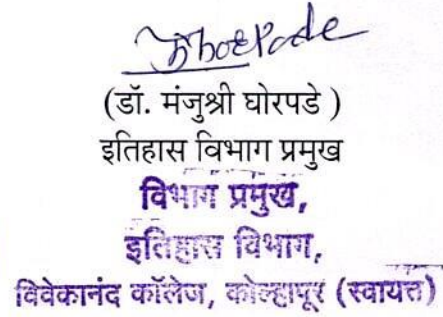 Ghorpade
(डॉ. मंजुश्री घोरपडे )
इतिहास विभाग प्रमुख
विभाग प्रमुख,
इतिहास विभाग,
विवेकानंद कॉलेज, कोल्हापूर (स्वायत्त)